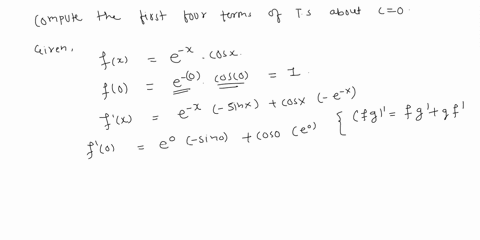 Compute the first four terms of TS about C=0
Given,
f(x) = e^{-x} . cosx
f(0) = e^{-(0)} cos(0) = 1.
f'(x) = e^{-x} (-sinx) + cosx (-e^{-x})
f'(0) = e^0 (-sin0) + cos0 (e^0) { (fg)' = fg' + gf'